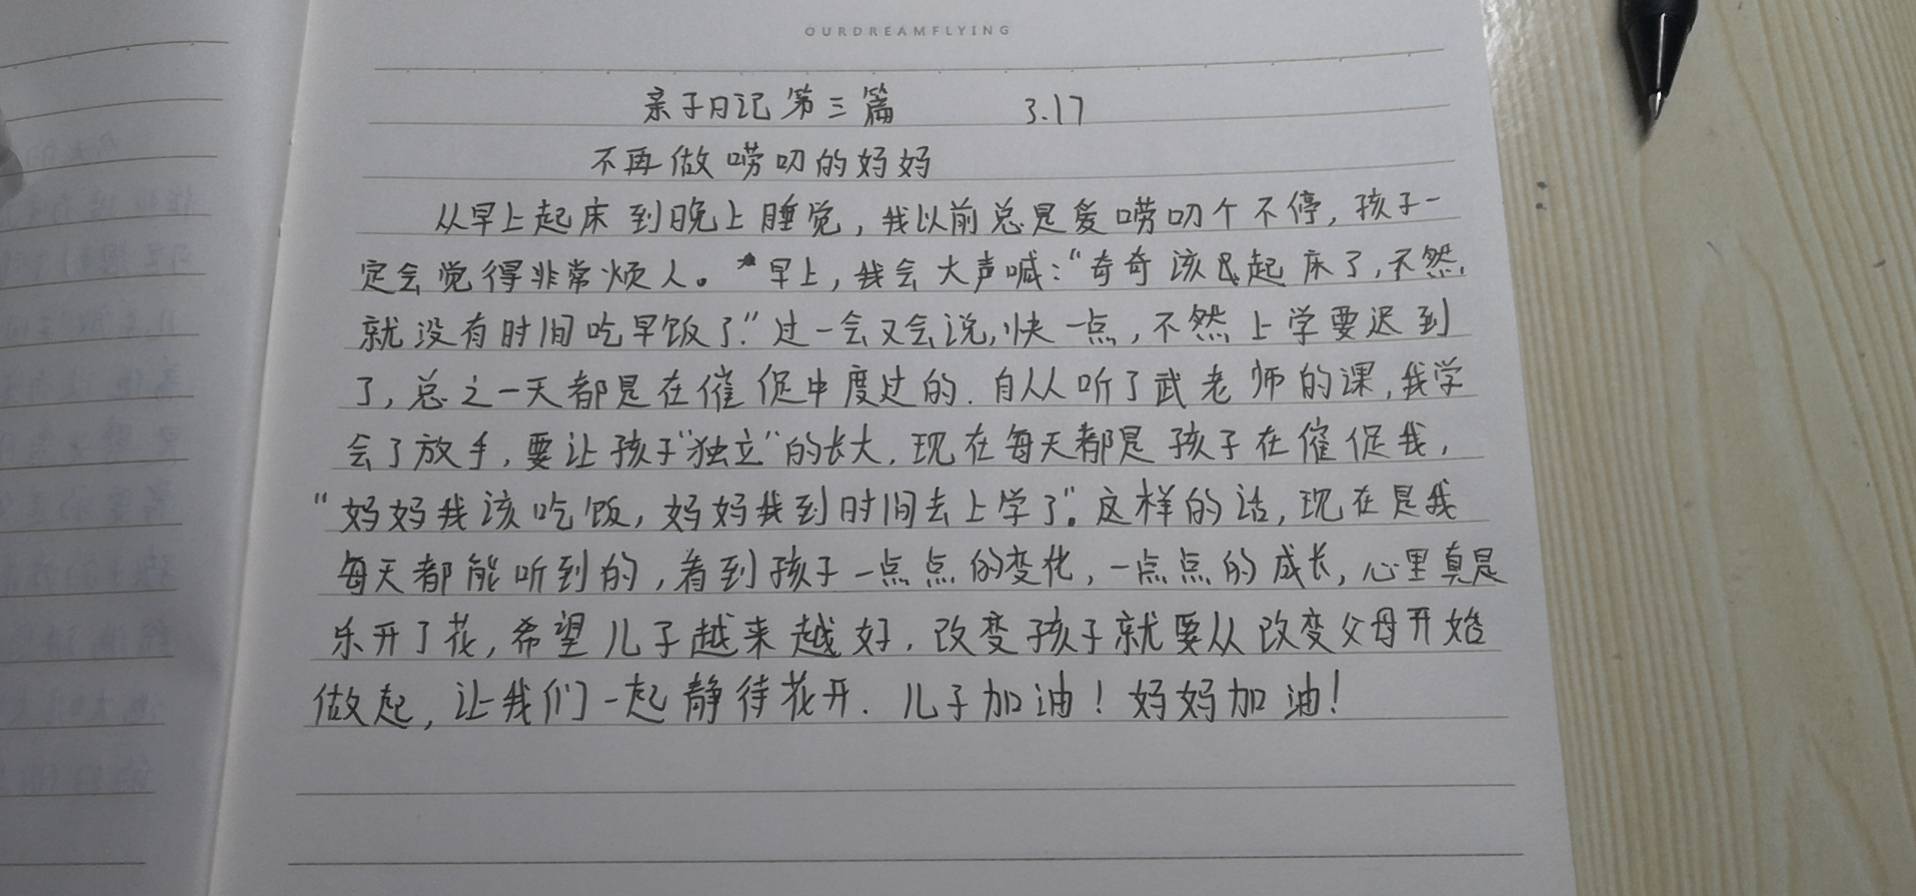 OURDREAMFLYING
亲子日记第三篇 3.17
不再做唠叨的妈妈
从早上起床到晚上睡觉，我以前总是爱唠叨个不停，孩子一
定会觉得非常烦人。早上，我会大声喊："奇奇该起床了，不然，
就没有时间吃早饭了."过一会又会说,快一点，不然上学要迟到
了，总之一天都是在催促中度过的.自从听了武老师的课,我学
会了放手,要让孩子"独立"的长大.现在每天都是孩子在催促我，
"妈妈我该吃饭,妈妈我到时间去上学了"。这样的话,现在是我
每天都能听到的,看到孩子一点点的变化,一点点的成长,心里真是
乐开了花,希望儿子越来越好.改变孩子就要从改变父母开始
做起,让我们一起静待花开.儿子加油！妈妈加油！